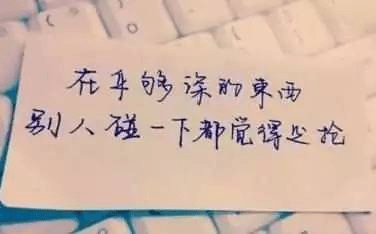 在乎够深的東西
别人碰一下都觉得是抢